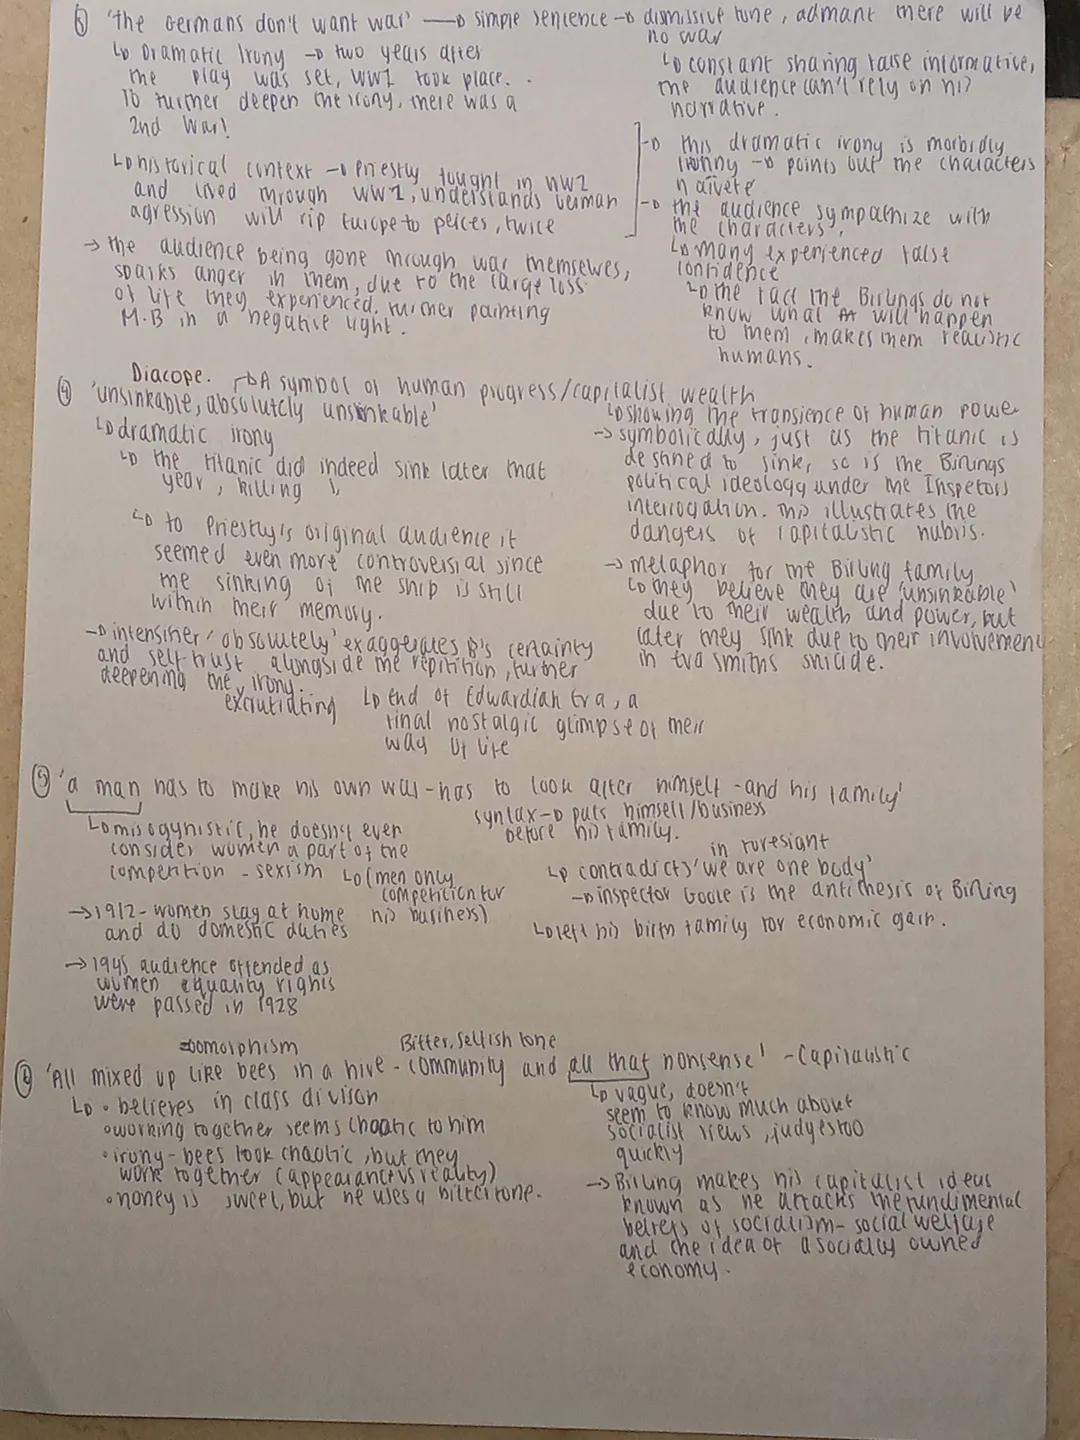 ③ 'the Germans don't want war' → simple sentence → dismissive tone, admant there will be
no war
↳ Dramatic Irony → two years after
the play was set, WW1 took place.
To further deepen the irony, there was a
2nd War!
↳ constant sharing false informative,
the audience can't rely on his
narrative.
↳ historical context → Priestly fought in WW1
and lived through WW2, understands German
agression will rip Europe to peices, twice
→ this dramatic irony is morbidly
funny → points out the characters
naïveté
→ the audience sympathize with
the characters,
↳ many experienced false
confidence
↳ the fact the Birlings do not
know what will happen
to them, makes them realistic
humans.
→ the audience being gone through war themselves,
sparks anger in them, due to the large loss
of life they experienced. Further painting
M.B in a negative light.
Diacope. ↱ A symbol of human progress/capitalist wealth
④ 'unsinkable, absolutely unsinkable'
↳ dramatic irony
↳ the titanic did indeed sink later that
year, killing
↳ to Priestly's original audience it
seemed even more controversial since
the sinking of the ship is still
within their memory.
→ intensifier 'absolutely' exaggerates B's certainty
and self-trust alongside the repitition, further
deepening the irony.
excrutiating
↳ end of Edwardian Era, a
final nostalgic glimpse of their
way of life
↳ showing the transience of human power
→ symbolically, just as the titanic is
destined to sink, so is the Birlings
political ideology under the Inspetors
interrogation. This illustrates the
dangers of capitalistic hubris.
→ metaphor for the Birling family
↳ they believe they are 'unsinkable'
due to their wealth and power, but
later they sink due to their involvement
in Eva Smiths suicide.
⑤ 'a man has to make his own way - has to look after himself - and his family'
↳ misogynistic, he doesn't even
consider women a part of the
competition - sexism
↳ (men only
competition for
his business)
→ 1912 - women stay at home
and do domestic duties
→ 1945 audience offended as
women equality rights
were passed in 1928
syntax → puts himself/business
before his family.
in foresight
↳ contradicts 'we are one body'
→ inspector Goole is the antithesis of Birling
↳ left his birth family for economic gain.
zoomorphism
Bitter, selfish tone
⑥ 'All mixed up like bees in a hive - community and all that nonsense' - Capitalistic
↳ • believes in class divison
• working together seems chaotic to him
• irony - bees look chaotic, but they
work together (appearance vs reality)
• honey is sweet, but he uses a bitter tone.
↳ vague, doesn't
seem to know much about
socialist views, judges too
quickly
→ Birling makes his capitalist ideas
known as he attacks the fundimental
beliefs of socialism - social welfare
and the idea of a socially owned
economy.